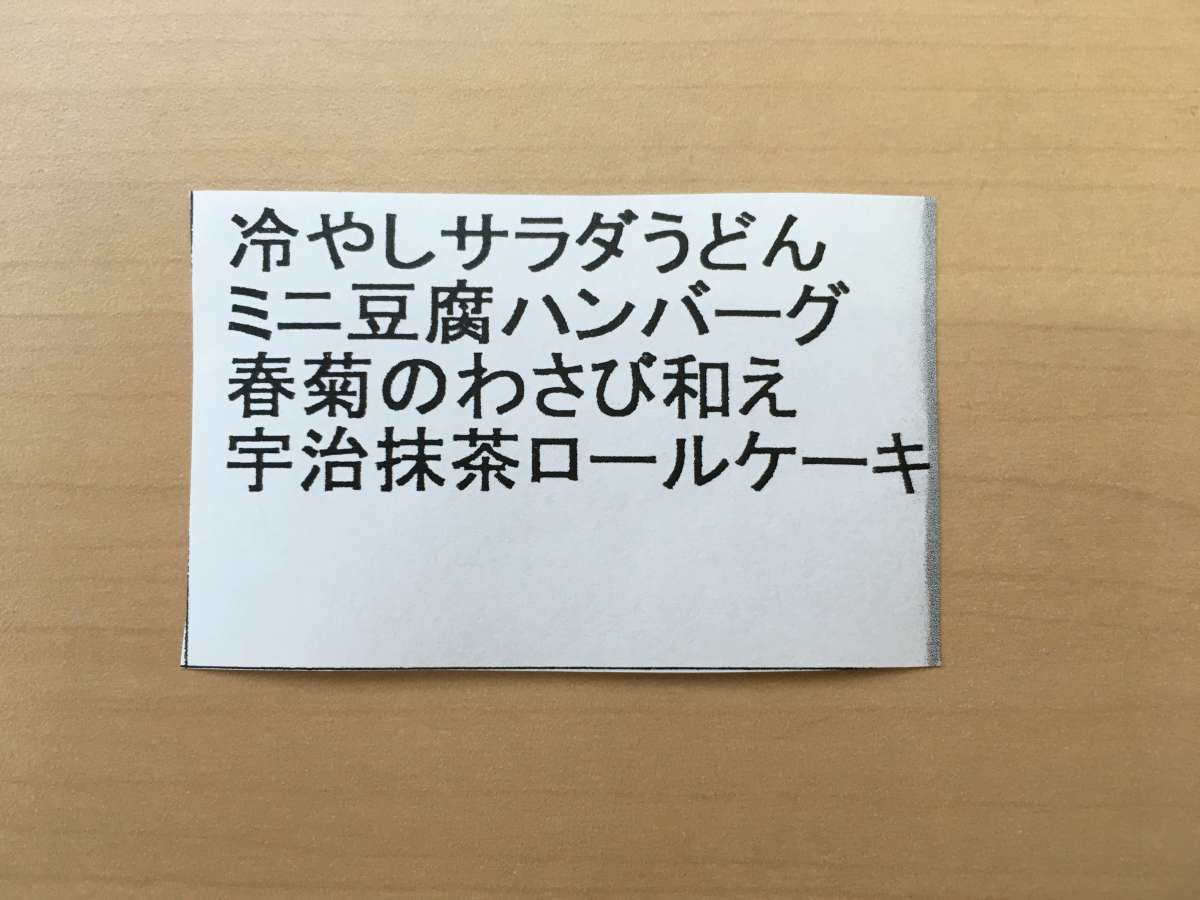 冷やしサラダうどん
ミニ豆腐ハンバーグ
春菊のわさび和え
宇治抹茶ロールケーキ